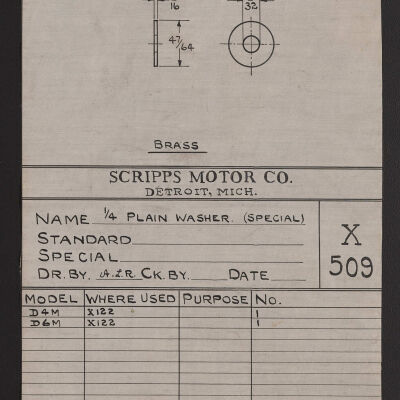 16
32
47/64
BRASS
SCRIPPS MOTOR CO.
DETROIT, MICH.
NAME 1/4 PLAIN WASHER. (SPECIAL)
STANDARD
SPECIAL
DR. BY. A.I.R. CK. BY. DATE
X
509
MODEL WHERE USED PURPOSE NO.
D4M X122 1
D6M X122 1